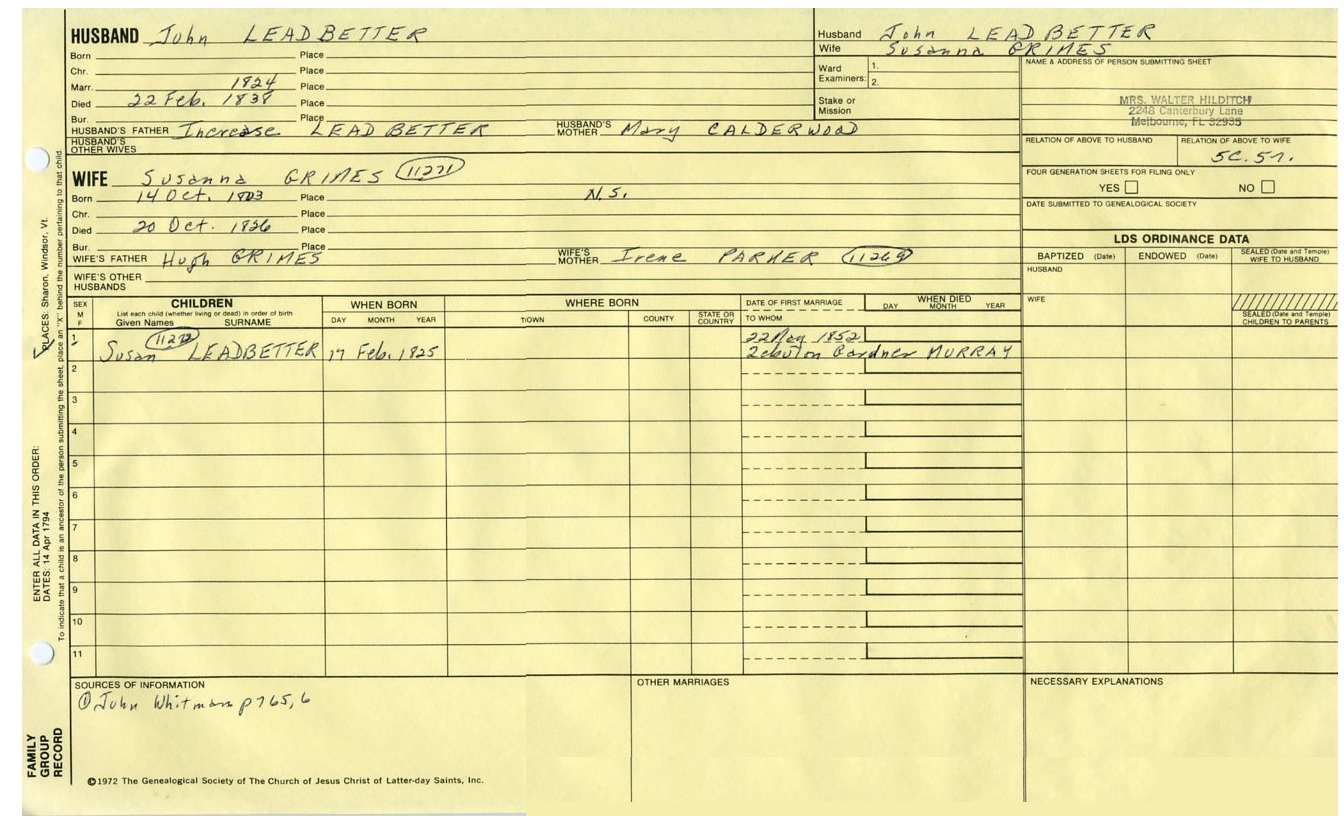 HUSBAND John LEADBETTER
Born Place
Chr. Place
Marr. 1824 Place
Died 22 Feb. 1838 Place
Bur. Place
HUSBAND'S FATHER Increase LEADBETTER HUSBAND'S MOTHER Mary CALDERWOOD
HUSBAND'S OTHER WIVES
Husband John LEADBETTER
Wife Susanna GRIMES
Ward Examiners: 1.
2.
Stake or Mission
NAME & ADDRESS OF PERSON SUBMITTING SHEET
MRS. WALTER HILDITCH
2248 Canterbury Lane
Melbourne, FL 32935
RELATION OF ABOVE TO HUSBAND RELATION OF ABOVE TO WIFE
FOUR GENERATION SHEETS FOR FILING ONLY
YES NO
DATE SUBMITTED TO GENEALOGICAL SOCIETY
WIFE Susanna GRIMES 11271
Born 14 Oct. 1803 Place N.S.
Chr. Place
Died 20 Oct. 1826 Place
Bur. Place
WIFE'S FATHER Hugh GRIMES WIFE'S MOTHER Irene PARKER 11269
WIFE'S OTHER HUSBANDS
LDS ORDINANCE DATA
BAPTIZED (Date) ENDOWED (Date) SEALED (Date and Temple) WIFE TO HUSBAND
HUSBAND
WIFE
SEALED (Date and Temple) CHILDREN TO PARENTS
SEX M F
CHILDREN
List each child (whether living or dead) in order of birth
Given Names SURNAME
WHEN BORN
DAY MONTH YEAR
WHERE BORN
TOWN COUNTY STATE OR COUNTRY
DATE OF FIRST MARRIAGE
TO WHOM
WHEN DIED
DAY MONTH YEAR
1 11272 22 May 1852
Susan LEADBETTER 17 Feb. 1825 Zebulon Gardner MURRAY
2
3
4
5
6
7
8
9
10
11
SOURCES OF INFORMATION
① John Whitman p 765, 6
OTHER MARRIAGES
NECESSARY EXPLANATIONS
©1972 The Genealogical Society of The Church of Jesus Christ of Latter-day Saints, Inc.
FAMILY GROUP RECORD
ENTER ALL DATA IN THIS ORDER:
DATES: 14 Apr 1794
PLACES: Sharon, Windsor, Vt.
To indicate that a child is an ancestor of the person submitting the sheet, place an "X" behind the number pertaining to that child.